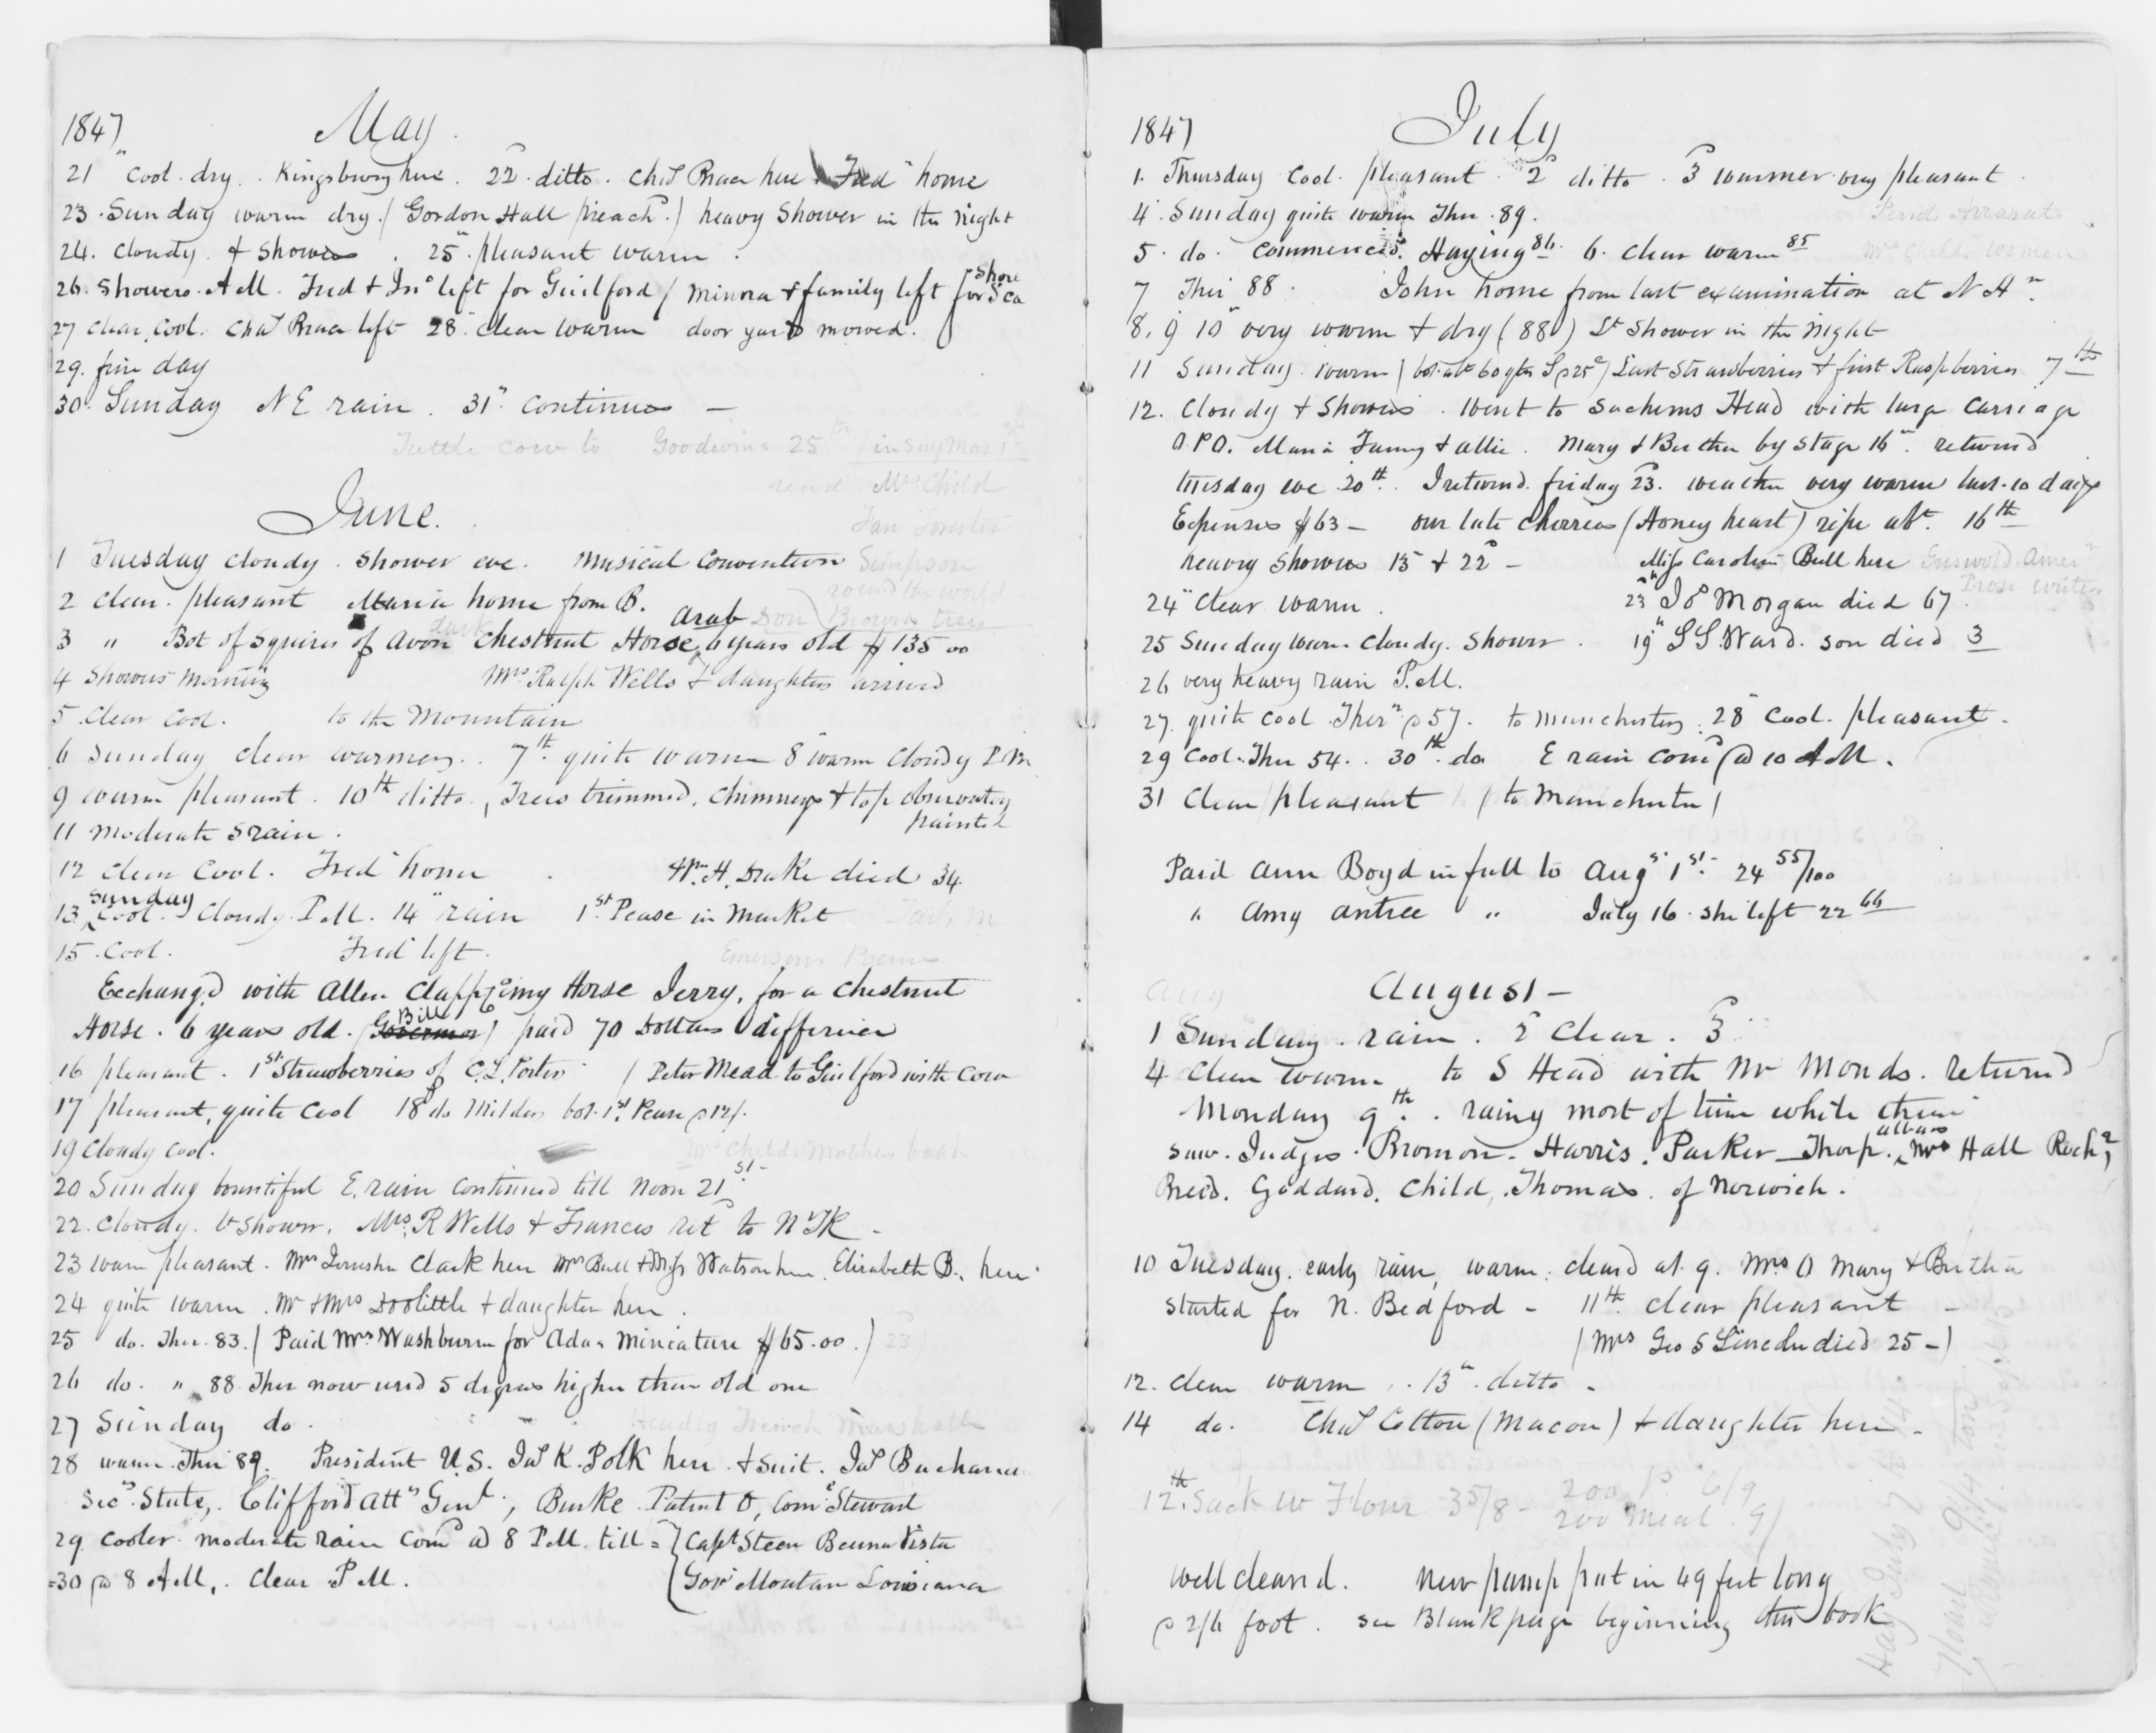 1847 May
21" Cool. dry. Kingsbury here. 22d ditto. Chs Brace here Fred home
23. Sunday warm dry. (Gordon Hall preachd.) heavy Shower in the night
24. Cloudy & Showers. 25" pleasant warm.
26. Showers. A M. Fred & Jno left for Guilford / Minora & family left for Sea Shore
27 Clear, Cool. Chas Brace left 28" Clear warm door yard mowed.
29. fine day
30. Sunday N E rain. 31" continues —
Tuttle cow to Goodwins 25th
read Mrs Child
June.
1 Tuesday cloudy. Shower eve. Musical Convention
Simpson
round the world
2 clear. pleasant Maria home from B.
3 " Bot of Squires of Avon Chestnut Horse, Arab 6 years old $135 00
4 Showers morning Mrs Ralph Wells & daughters arrived
5. Clear Cool. to the Mountain
6 Sunday clear warmer. 7th quite warm 8" warm cloudy P M
9 warm pleasant. 10th ditto, Trees trimmed, Chimneys & top observatory painted
11 moderate S rain.
12 Clear Cool. Fred home Wm. H. Drake died 34
13. Sunday Cool. Cloudy P.M. 14" rain 1st Pease in Market
15. Cool. Fred left.
Emersons Poems
Exchangd with Allen Clapp my Horse Jerry, for a Chestnut
Horse. 6 years old. (Governor) Bill paid 70 Dollars difference
16 pleasant. 1st Strawberries of C. L. Porter / Peter Mead to Guilford with Cow
17 pleasant, quite cool 18 do Milder bot. 1st Pease @ 12/.
19 Cloudy Cool.
Mrs Childs Mothers book
20 Sunday bountiful E. rain continued till noon 21st
22. Cloudy. Lt Shower. Mrs. R Wells & Frances retd to N YK —
23 warm pleasant. Mrs Jerusha Clark here Mrs Bull & Miss Watson here. Elizabeth B., here
24 quite warm. Mr & Mrs Doolittle & daughter here.
25 do. Ther. 83. (Paid Mrs. Washburn for Adas Miniature $65.00.)
26 do. " 88 Ther now used 5 degrees higher than old one
27 Sunday do.
28 warm. Ther 89. President U.S. Jas K. Polk here & Suit. Jas Buchanan
Secy. State, Clifford Atty Genl, Burke Patent O, Come Stewart
29 cooler. moderate rain comd @ 8 P.M. till = { Capt Steen Beuna Vista
=30 @ 8 A M,. Clear P M. { Gov Moutan Louisiana
1847 July
1. Thursday Cool. pleasant. 2d ditto. 3d warmer very pleasant.
4. Sunday quite warm Ther. 89.
5. do. Commenced Haying 86. 6. Clear warm 85
Mrs Child. Women
7 Ther 88. John home from last examination at N Hn.
8. 9 10" very warm & dry (88) Lt Shower in the night
11 Sunday. warm / bot. abt 60 qts S @ 25c / Last Strawberries & first Raspberries 7th
12. Cloudy & Showers. Went to Sachems Head with large Carriage
Maria Fanny & Allie. Mary & Bertha by Stage 16". returnd
tuesday eve 20th. I returnd. friday 23. weather very warm last 10 days
Expenses $63 — our late Cherries (Honey heart) ripe abt. 16th
heavy Showers 15 & 22d — Miss Caroline Bull here
Griswold Amern
Prose writers
24" Clear warm. 23" J P Morgan died 67.
25 Sunday warm cloudy. Shower. 19" S S. Ward. son died 3
26 very heavy rain P.M.
27. quite cool Ther @ 57. to Manchester. 28" Cool. pleasant.
29 Cool. Ther 54. 30th. do E rain comd @ 10 A M.
31 Clear pleasant (to Manchester)
Paid Ann Boyd in full to Augst 1st. 24 55/100
" Amy Antree " July 16. she left 22 66
August —
1 Sunday. rain. 2d Clear. 3d
4 Clear warm to S Head with Mr Monds. returned
Monday 9th. rainy most of time while there
saw. Judges. Bronson. Harris. Parker — Thorp. Mrs Hall
Reed. Goddard. Child, Thomas. of Norwich.
10 Tuesday. early rain, warm: cleard at 9. Mrs O Mary & Bertha
started for N. Bedford — 11th. clear pleasant —
(Mrs Geo S Lincoln died 25 —)
12. clear warm. 13". ditto —
14 do. Chas Cotton (Macon) & daughter here —
12th. Sack W Flour 35/8 — 200 P 6/9
200 Meal. 9/
Well cleand. New pump put in 49 feet long
@ 2/6 foot. see Blank page beginning this book